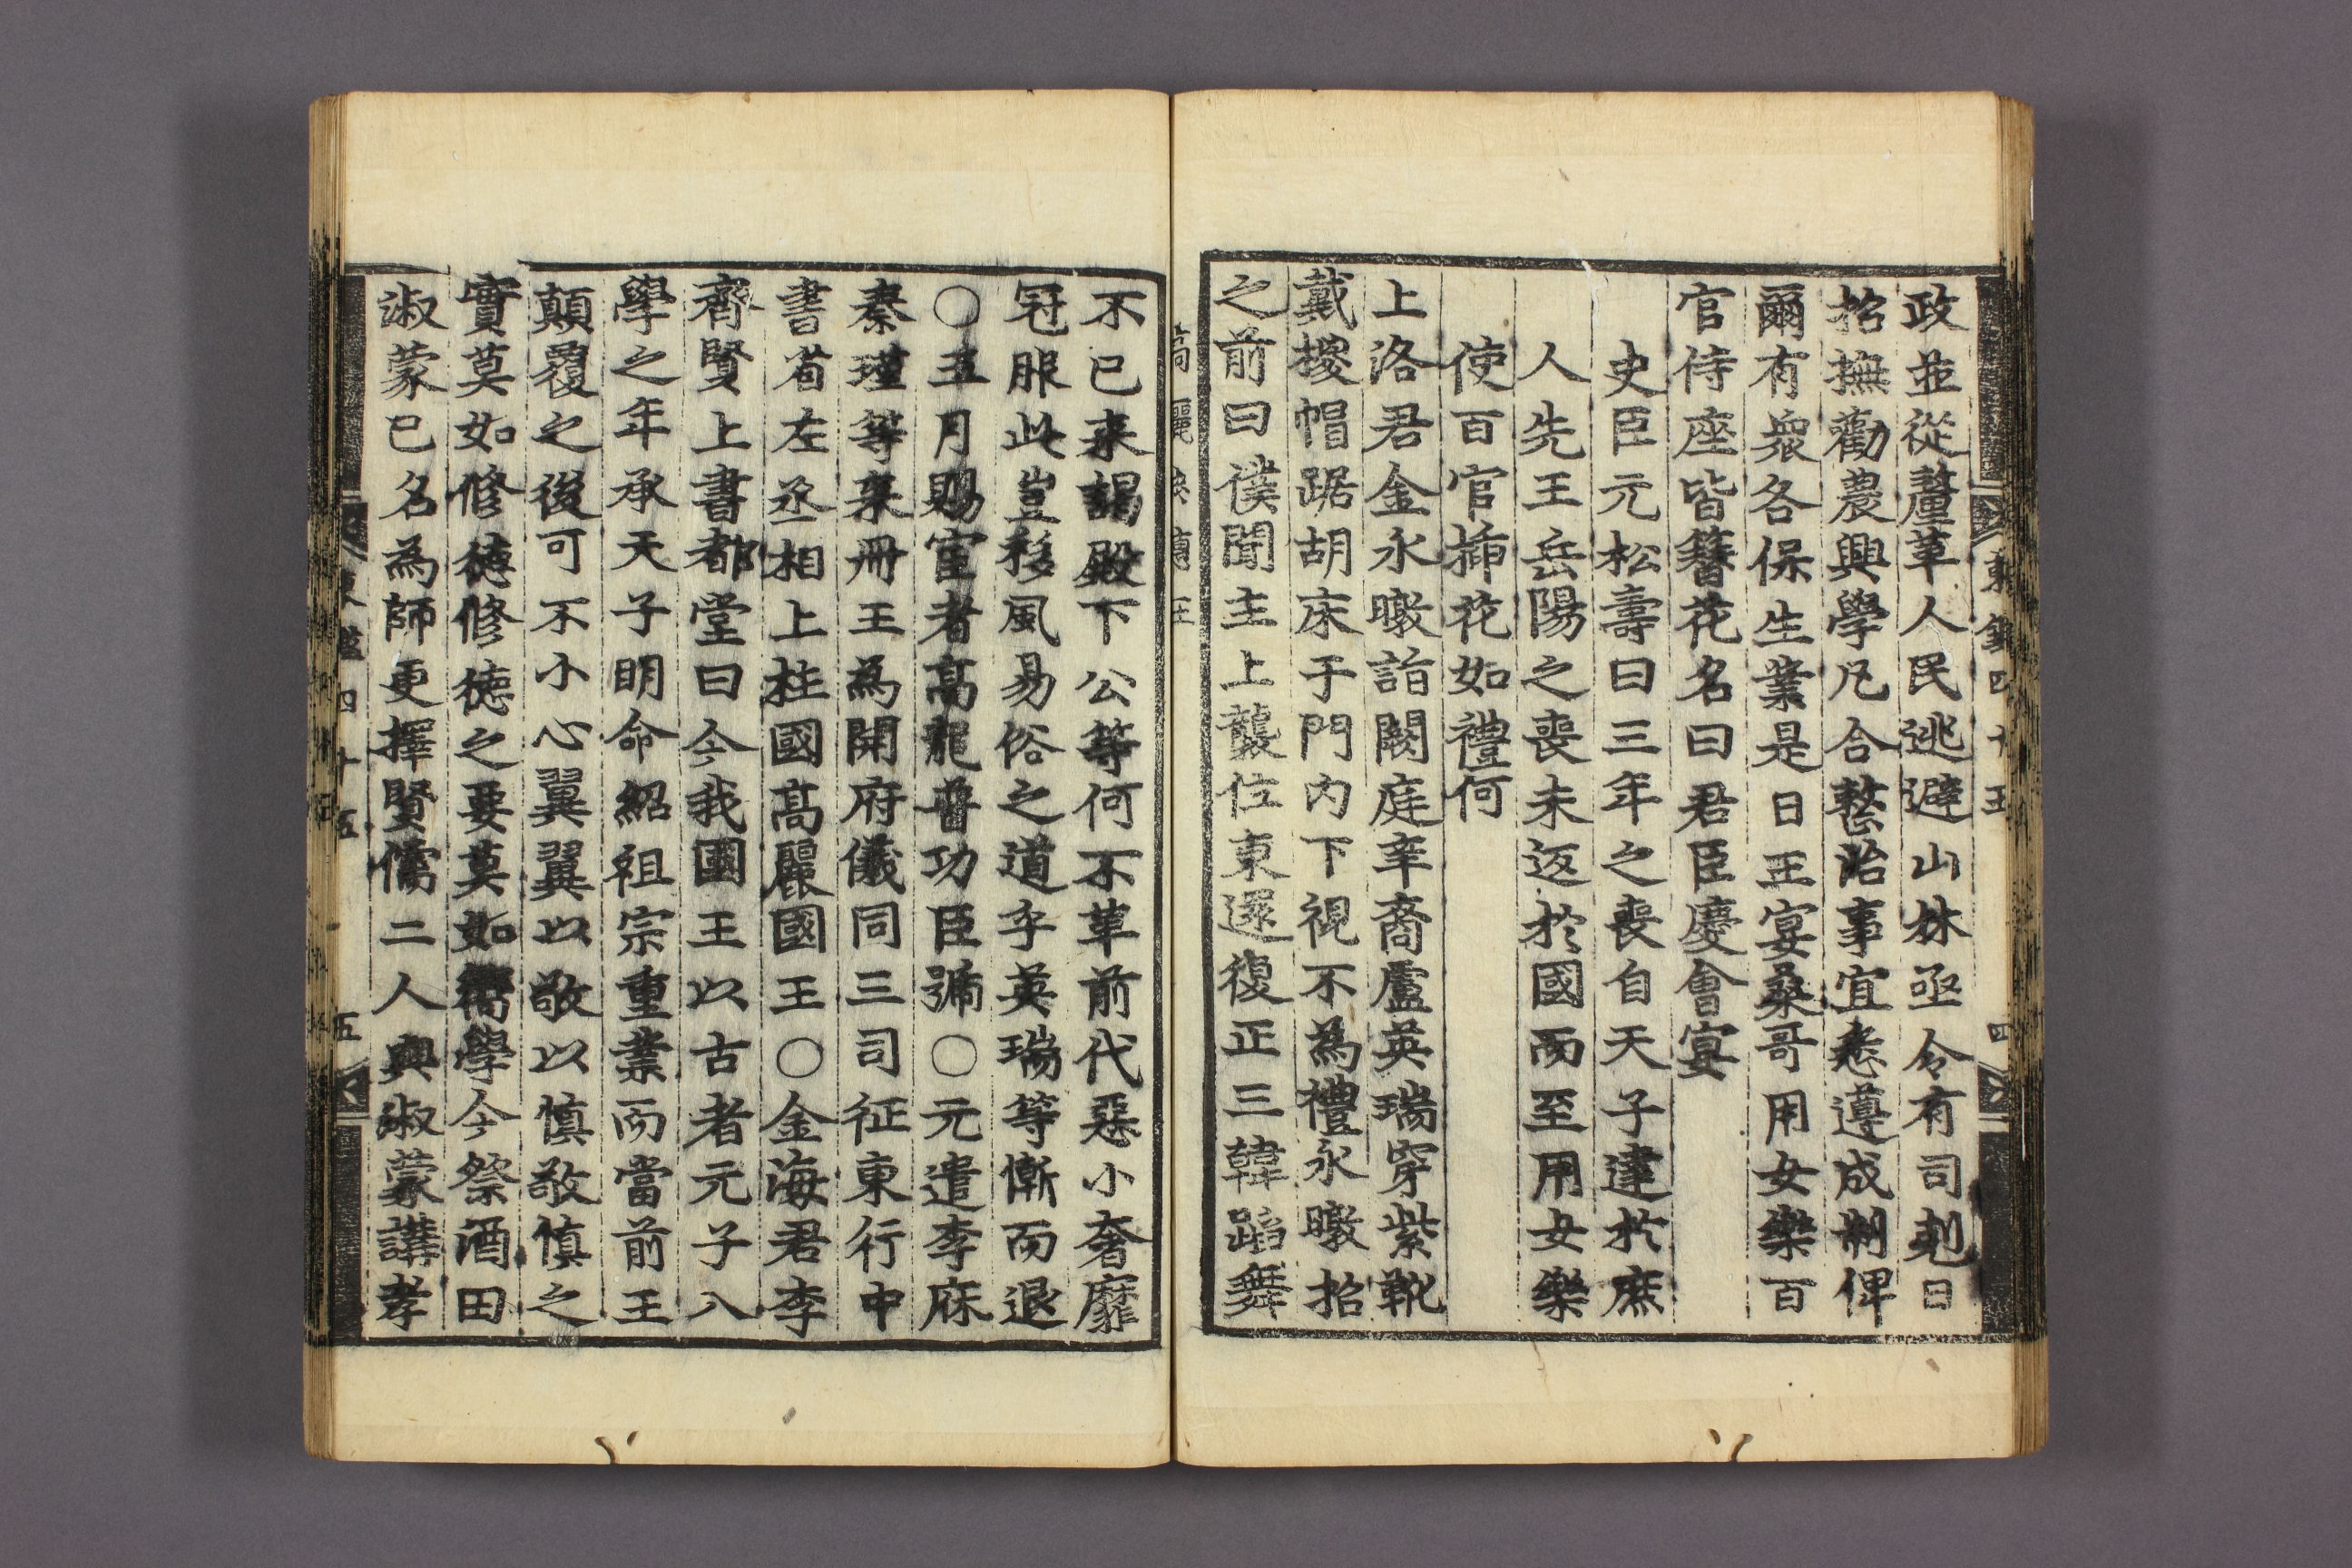 政並從釐革人民逃避山林亟令有司剋日
招撫勸農興學凡合整治事宜悉遵成制俾
爾有衆各保生業是日王宴桑哥用女樂百
官侍座皆簪花名曰君臣慶會宴
史臣元松壽曰三年之喪自天子達於庶
人先王岳陽之喪未返於國而至用女樂
使百官揷花如禮何
上洛君金永暾詣闕庭辛裔盧英瑞穿紫靴
戴椶帽踞胡床于門內下視不為禮永暾招
之前曰僕聞主上襲位東還復正三韓蹈舞
不已来謁殿下公等何不革前代惡小奢靡
冠服此豈移風易俗之道乎英瑞等慚而退
〇五月賜宦者高龍普功臣號〇元遣李庥
秦瑾等来冊王為開府儀同三司征東行中
書省左丞相上柱國高麗國王〇金海君李
齊賢上書都堂曰今我國王以古者元子八
學之年承天子明命紹祖宗重業而當前王
顛覆之後可不小心翼翼以敬以慎敬慎之
實莫如修德修德之要莫如嚮學今祭酒田
淑蒙已名為師更擇賢儒二人與淑蒙講孝
東鑑四十五
四
東鑑四十五
五